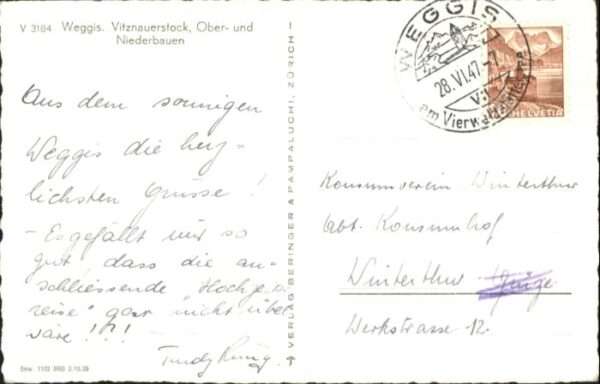 V 3184 Weggis. Vitznauerstock, Ober- und
Niederbauen
Aus dem sonnigen
Weggis die herz-
lichsten Grüsse!
- Es gefällt mir so
gut, dass die an-
schliessende "Hochzeits
reise" gar nicht übel
wäre!!!
Trudy
VERLAG BERINGER & PAMPALUCHI, ZÜRICH
WEGGIS
28.VI.47
am Vierwaldstättersee
HELVETIA
Konsumverein Winterthur
Abt. Konsumhof
Winterthur
Werkstrasse 12.